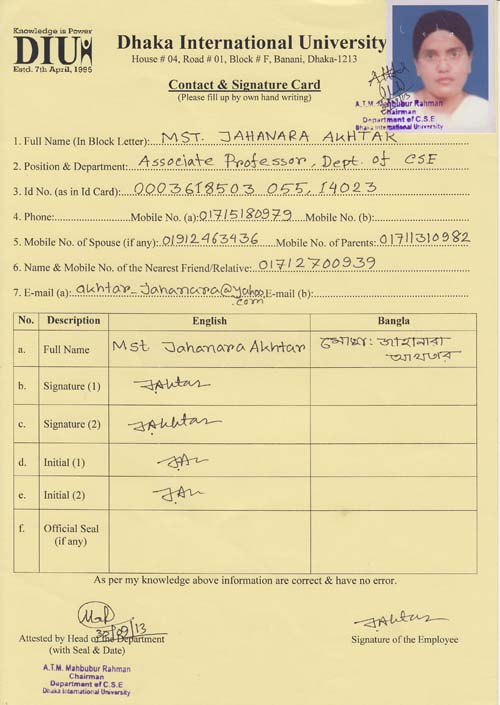 Knowledge is Power
DIU
Estd. 7th April, 1995
Dhaka International University
House # 04, Road # 01, Block # F, Banani, Dhaka-1213
Contact & Signature Card
(Please fill up by own hand writing)
A.T.M. Mahbubur Rahman
Chairman
Department of C.S.E
Dhaka International University
1. Full Name (In Block Letter): MST. JAHANARA AKHTAR
2. Position & Department: Associate Professor, Dept. of CSE
3. Id No. (as in Id Card): 0003618503 055, 14023
4. Phone: Mobile No. (a): 01715180979 Mobile No. (b):
5. Mobile No. of Spouse (if any): 01912463436 Mobile No. of Parents: 01711310982
6. Name & Mobile No. of the Nearest Friend/Relative: 01712700939
7. E-mail (a): akhtar_Jahanara@yahoo.com E-mail (b):
No. Description English Bangla
a. Full Name Mst. Jahanara Akhtar মোছাঃ জাহানারা আখতার
b. Signature (1) JAkhtar
c. Signature (2) JAkhtar
d. Initial (1)
e. Initial (2)
f. Official Seal (if any)
As per my knowledge above information are correct & have no error.
30/09/13
JAkhtar
Attested by Head of the Department
(with Seal & Date)
Signature of the Employee
A.T.M. Mahbubur Rahman
Chairman
Department of C.S.E
Dhaka International University